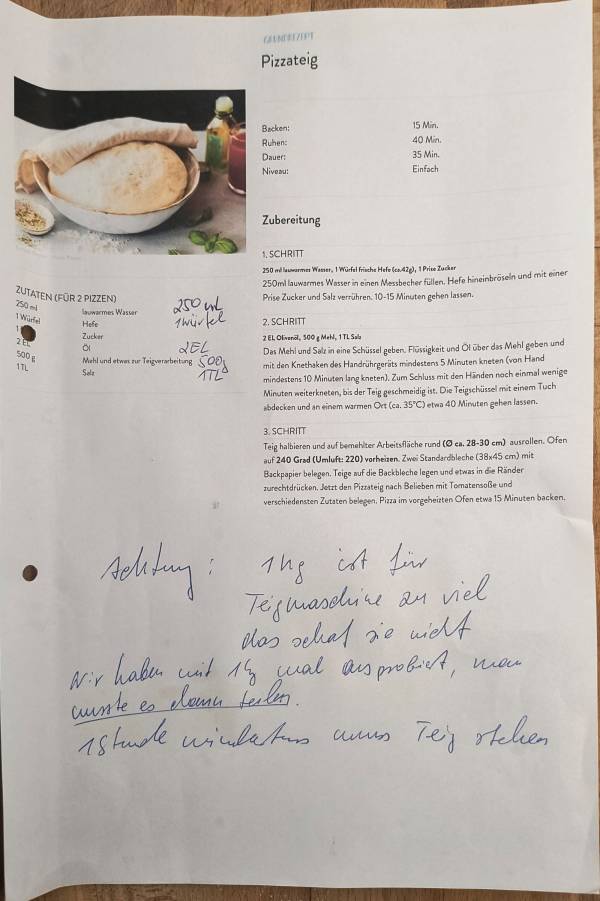 GRUNDREZEPT
Pizzateig
Backen: 15 Min.
Ruhen: 40 Min.
Dauer: 35 Min.
Niveau: Einfach
ZUTATEN (FÜR 2 PIZZEN)
250 ml lauwarmes Wasser 250 ml
1 Würfel Hefe 1 Würfel
1 Zucker
2 EL Öl 2EL
500 g Mehl und etwas zur Teigverarbeitung 500g
1 TL Salz 1TL
Zubereitung
1. SCHRITT
250 ml lauwarmes Wasser, 1 Würfel frische Hefe (ca.42g), 1 Prise Zucker
250ml lauwarmes Wasser in einen Messbecher füllen. Hefe hineinbröseln und mit einer
Prise Zucker und Salz verrühren. 10-15 Minuten gehen lassen.
2. SCHRITT
2 EL Olivenöl, 500 g Mehl, 1 TL Salz
Das Mehl und Salz in eine Schüssel geben. Flüssigkeit und Öl über das Mehl geben und
mit den Knethaken des Handrührgeräts mindestens 5 Minuten kneten (von Hand
mindestens 10 Minuten lang kneten). Zum Schluss mit den Händen noch einmal wenige
Minuten weiterkneten, bis der Teig geschmeidig ist. Die Teigschüssel mit einem Tuch
abdecken und an einem warmen Ort (ca. 35°C) etwa 40 Minuten gehen lassen.
3. SCHRITT
Teig halbieren und auf bemehlter Arbeitsfläche rund (Ø ca. 28-30 cm) ausrollen. Ofen
auf 240 Grad (Umluft: 220) vorheizen. Zwei Standardbleche (38x45 cm) mit
Backpapier belegen. Teige auf die Backbleche legen und etwas in die Ränder
zurechtdrücken. Jetzt den Pizzateig nach Belieben mit Tomatensoße und
verschiedensten Zutaten belegen. Pizza im vorgeheizten Ofen etwa 15 Minuten backen.
Achtung: 1 kg ist für
Teigmaschine zu viel
das schaf sie nicht
Wir haben mit 1kg mal ausprobiert, man
musste es dann teilen.
1 Stunde mindestens muss Teig stehen